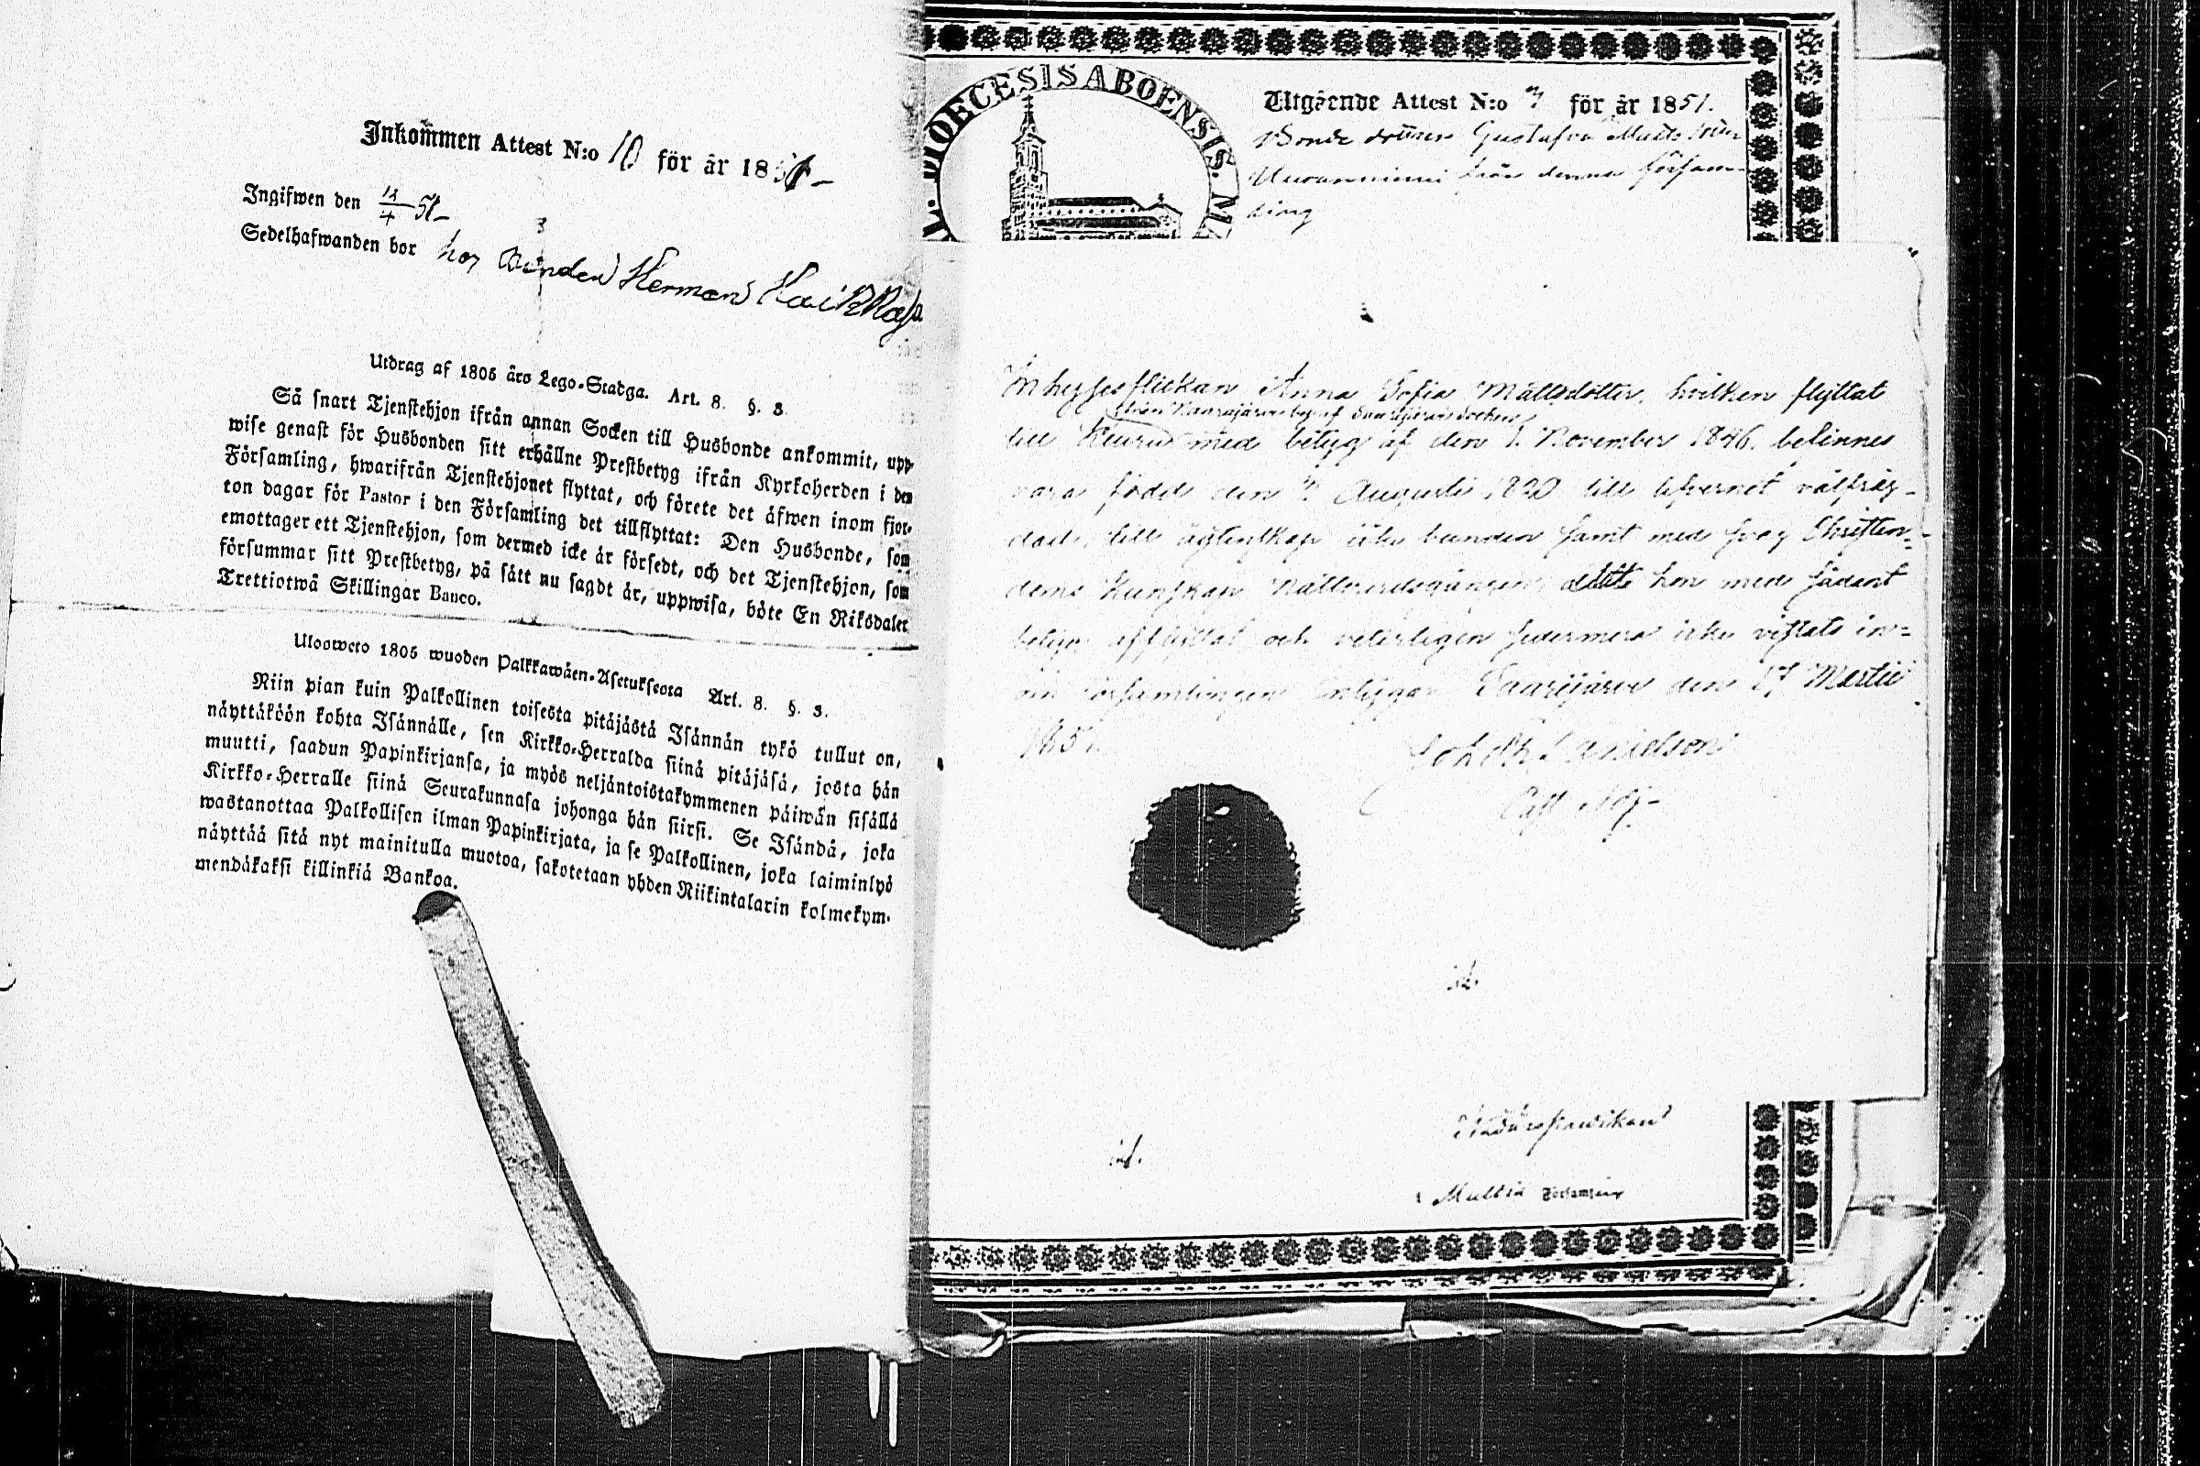 Inkommen Attest N:o 10 för år 1851
Ingifwen den 14/4 51
Sedelhafwanden bor hos Bonden Herman Haikkaja
Utdrag af 1805 års Lego-Stadga. Art. 8. §. 3.
Så snart Tjenstehjon ifrån annan Socken till Husbonde ankommit, upp-
wise genast för Husbonden sitt erhållne Prestbetyg ifrån Kyrkoherden i den
Församling, hwarifrån Tjenstehjonet flyttat, och förete det äfwen inom fjor-
ton dagar för Pastor i den Församling det tillflyttat: Den Husbonde, som
emottager ett Tjenstehjon, som dermed icke är försedt, och det Tjenstehjon, som
försummar sitt Prestbetyg, på sätt nu sagdt är, uppwisa, böte En Riksdaler
Trettiotwå Skillingar Banco.
Ulosweto 1805 wuoden Palkkawäen-Asetuksesta Art. 8. §. 3.
Niin pian kuin Palkollinen toisesta pitäjästä Isännän tykö tullut on,
näyttäköön kohta Isännälle, sen Kirkko-Herralda siinä pitäjäsä, josta hän
muutti, saadun Papinkirjansa, ja myös neljäntoistakymmenen päiwän sisällä
Kirkko-Herralle siinä Seurakunnasa johonga hän siirsi. Se Isändä, joka
wastanottaa Palkollisen ilman Papinkirjata, ja se Palkollinen, joka laiminlyö
näyttää sitä nyt mainitulla muotoa, sakotetaan yhden Riikintalarin kolmekym-
mendäkaksi killinkiä Bankoa.
DIOECESIS ABOENSIS. M
Utgående Attest N:o 7 för år 1851.
Bonde dottren Gustafva Matts dotter
från denna församling
Inhysesflickan Anna Sofia Mattsdotter, hvilken flyttat
från Naarajärvi by af Saarijärvi socken
till Keuru med betyg af den 1 November 1846, befinnes
vara född den 4 Augusti 1820 till lefvernet välfräg-
dad, till ägtenskap icke bunden samt med svag Christen-
doms kunskap Nattvardsgången, dette hon med sådant
betyg afflyttat och veterligen sedermera icke vistats in-
om församlingen intygar Saarijärvi den 17 Martii
1851.
Danielson
Past. Adj.
id.
id.
Multia Församling